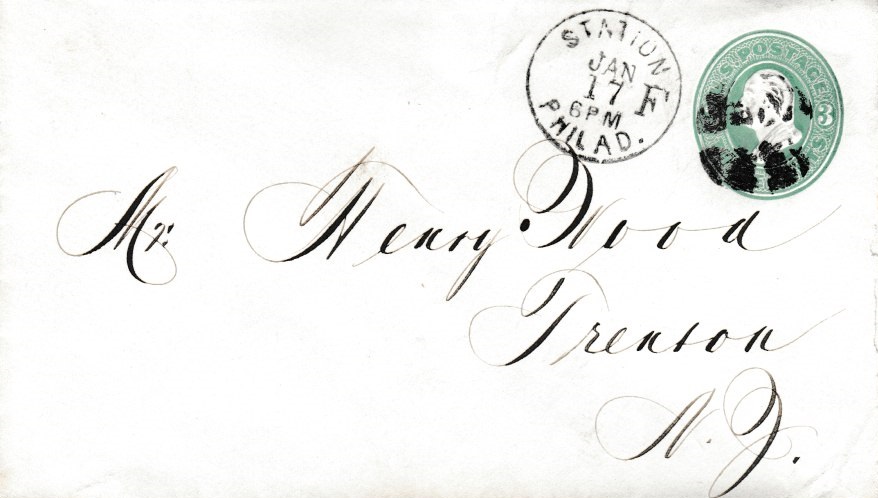 STATION F
JAN
17
6PM
PHILAD.
U.S. POSTAGE
3
Mr. Henry Wood
Trenton
N. J.